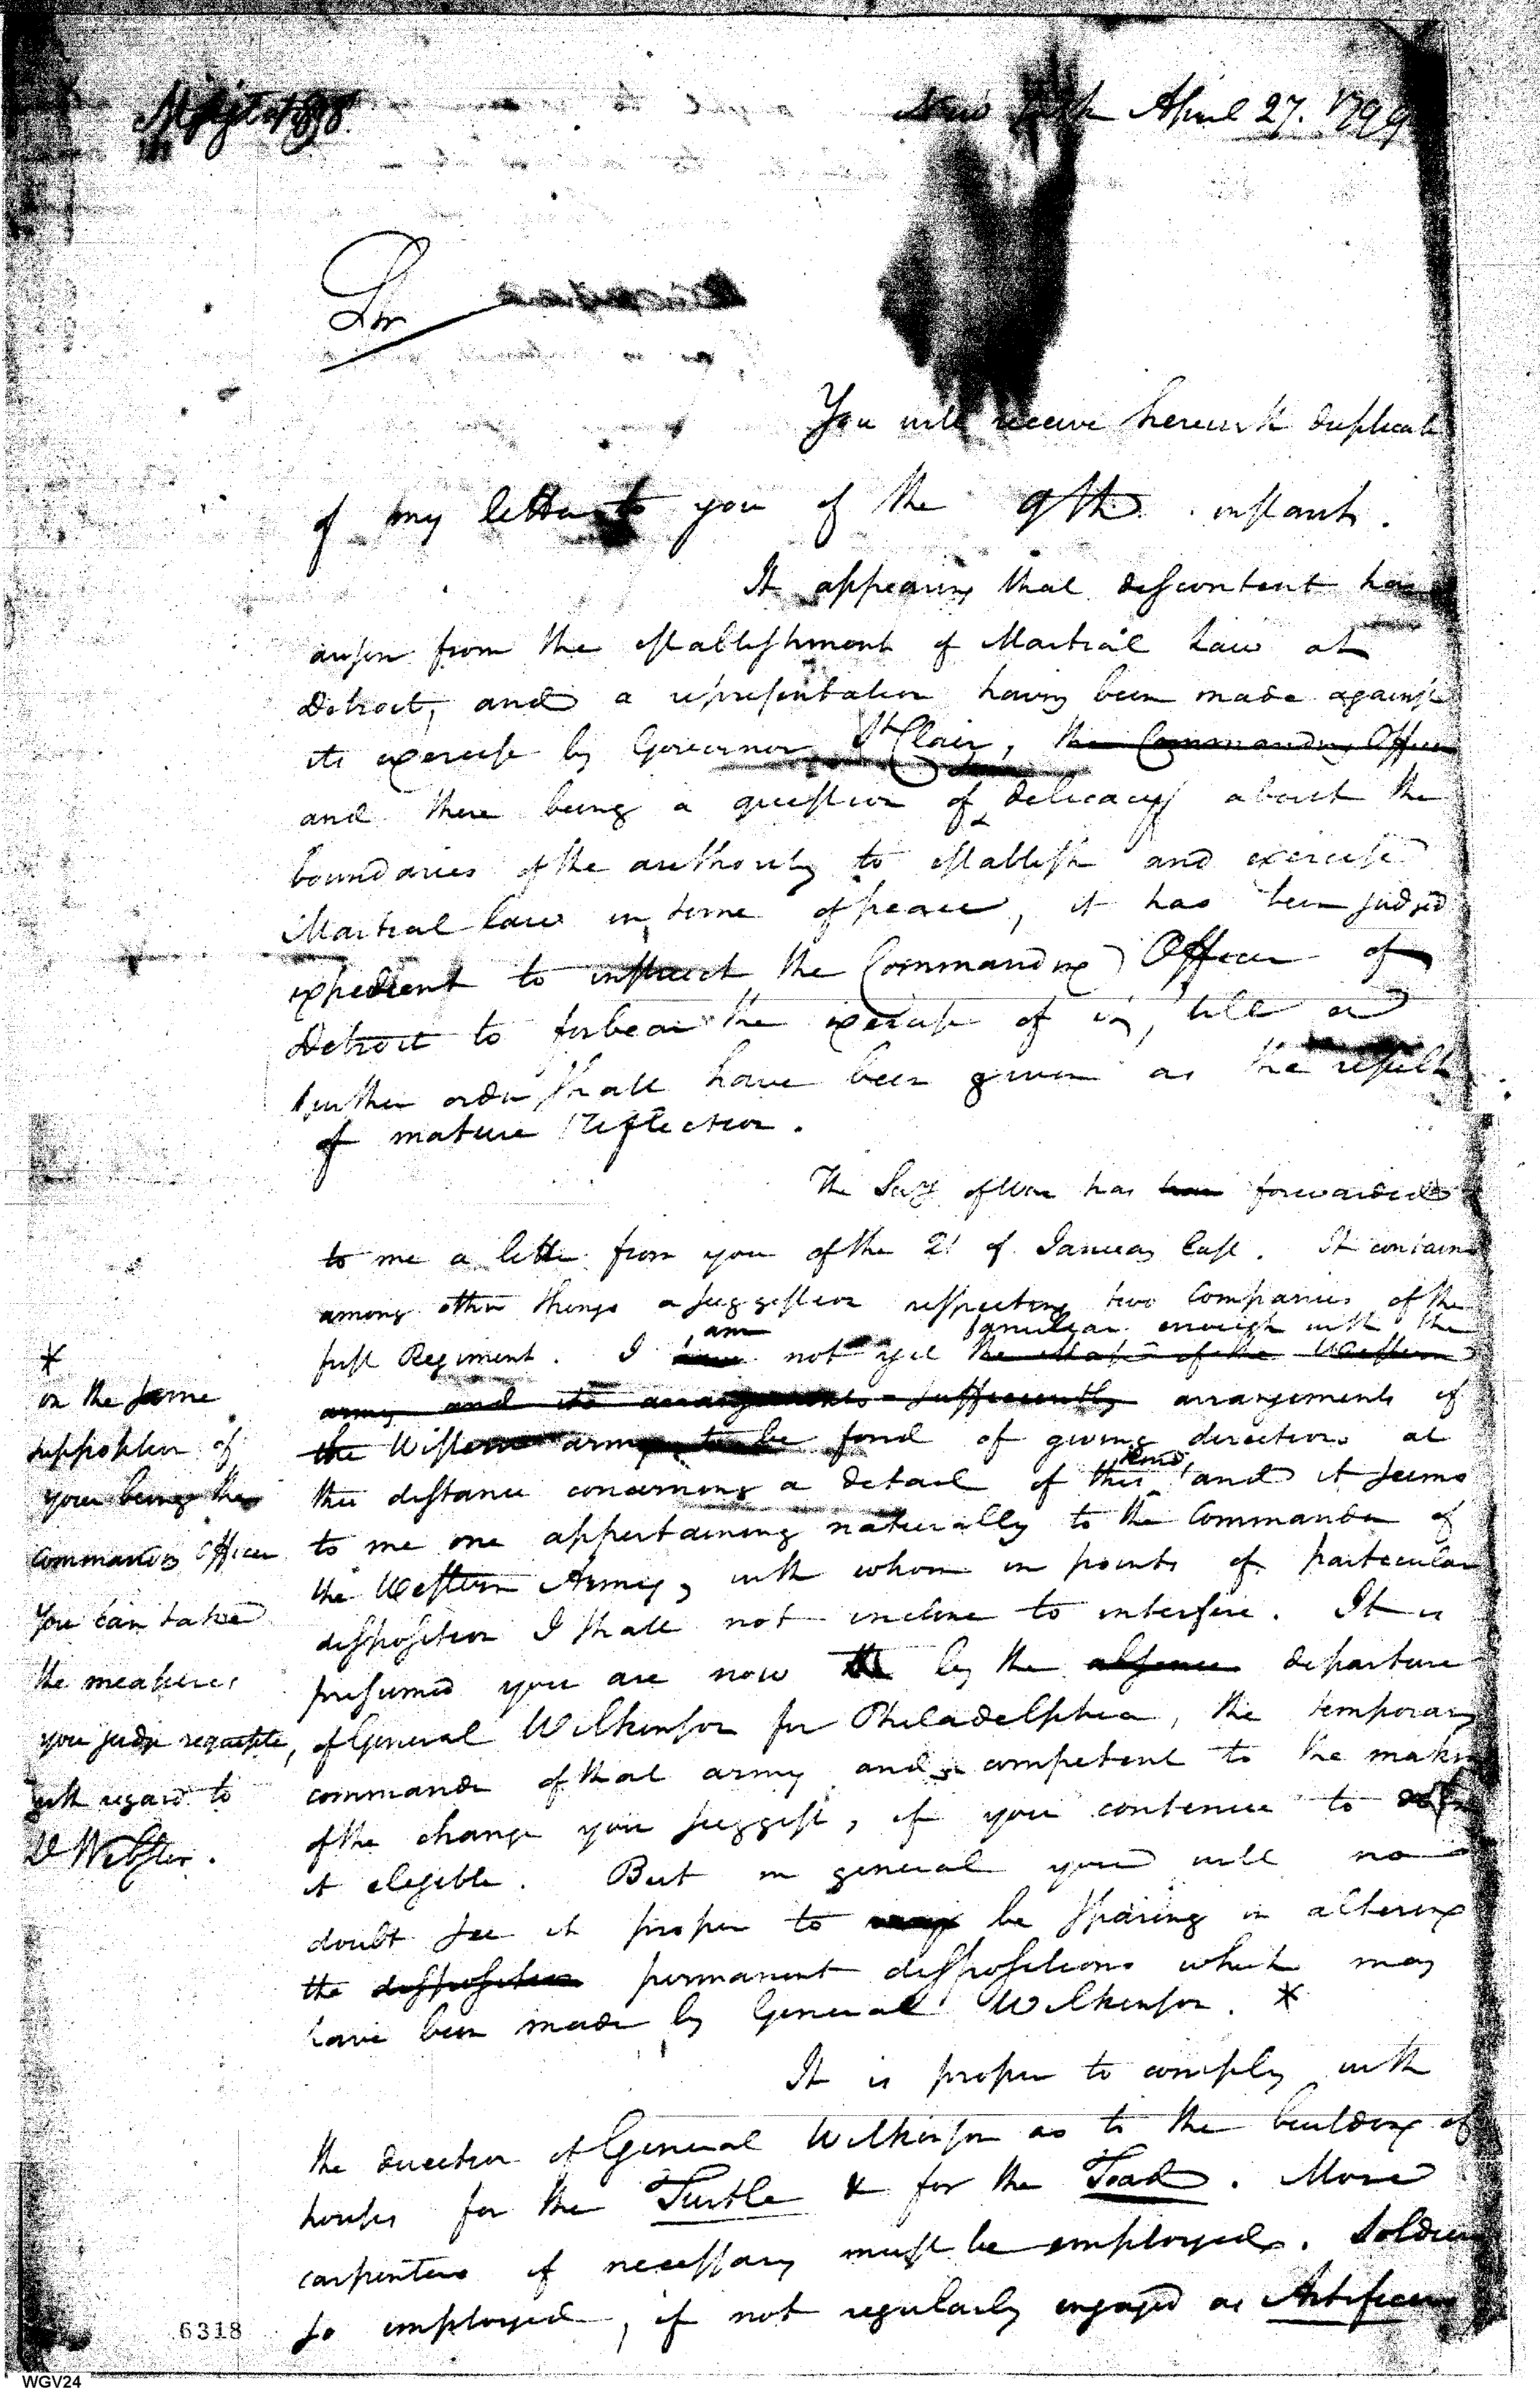 New York April 27. 1799
Sir
You will receive herewith duplicate
of my letter to you of the 9th. instant.
It appearing that discontent has
arisen from the establishment of Martial Law at
Detroit, and a representation having been made against
its exercise by Governor St Clair, the Commanding Officer
and there being a question of delicacy about the
boundaries of the authority to establish and exercise
Martial law in time of peace, it has been judged
expedient to instruct the Commanding Officer of
Detroit to forbear the exercise of it, till a
further order shall have been given as the result
of mature reflection.
The Secy of War has forwarded
to me a letter from you of the 21 of January last. It contains
among other things a suggestion respecting two Companies of the
am familiar enough with the
first Regiment. I have not yet the state of the Western
army and its arrangements sufficiently arrangements of
the Western army to be fond of giving directions at
kind
this distance concerning a detail of this and it seems
to me one appertaining naturally to the Commander of
the Western Army, with whom in points of particular
disposition I shall not incline to interfere. It is
presumed you are now by the absence departure
of General Wilkinson for Philadelphia, the temporary
commander of that army and competent to the making
of the change you suggest, if you continue to
it eligible. But in general you will no
doubt see it proper to be sparing in altering
the disposition permanent dispositions which may
have been made by General Wilkinson. *
*
on the same
supposition of
your being the
commanding Officer
You can take
the measures
you judge requisite,
with regard to
Webster.
It is proper to comply with
the direction of General Wilkinson as to the building of
houses for the Turtle & for the Toad. More
carpenters if necessary must be employed. Soldiers
so employed, if not regularly engaged as Artificers
6318
WGV24